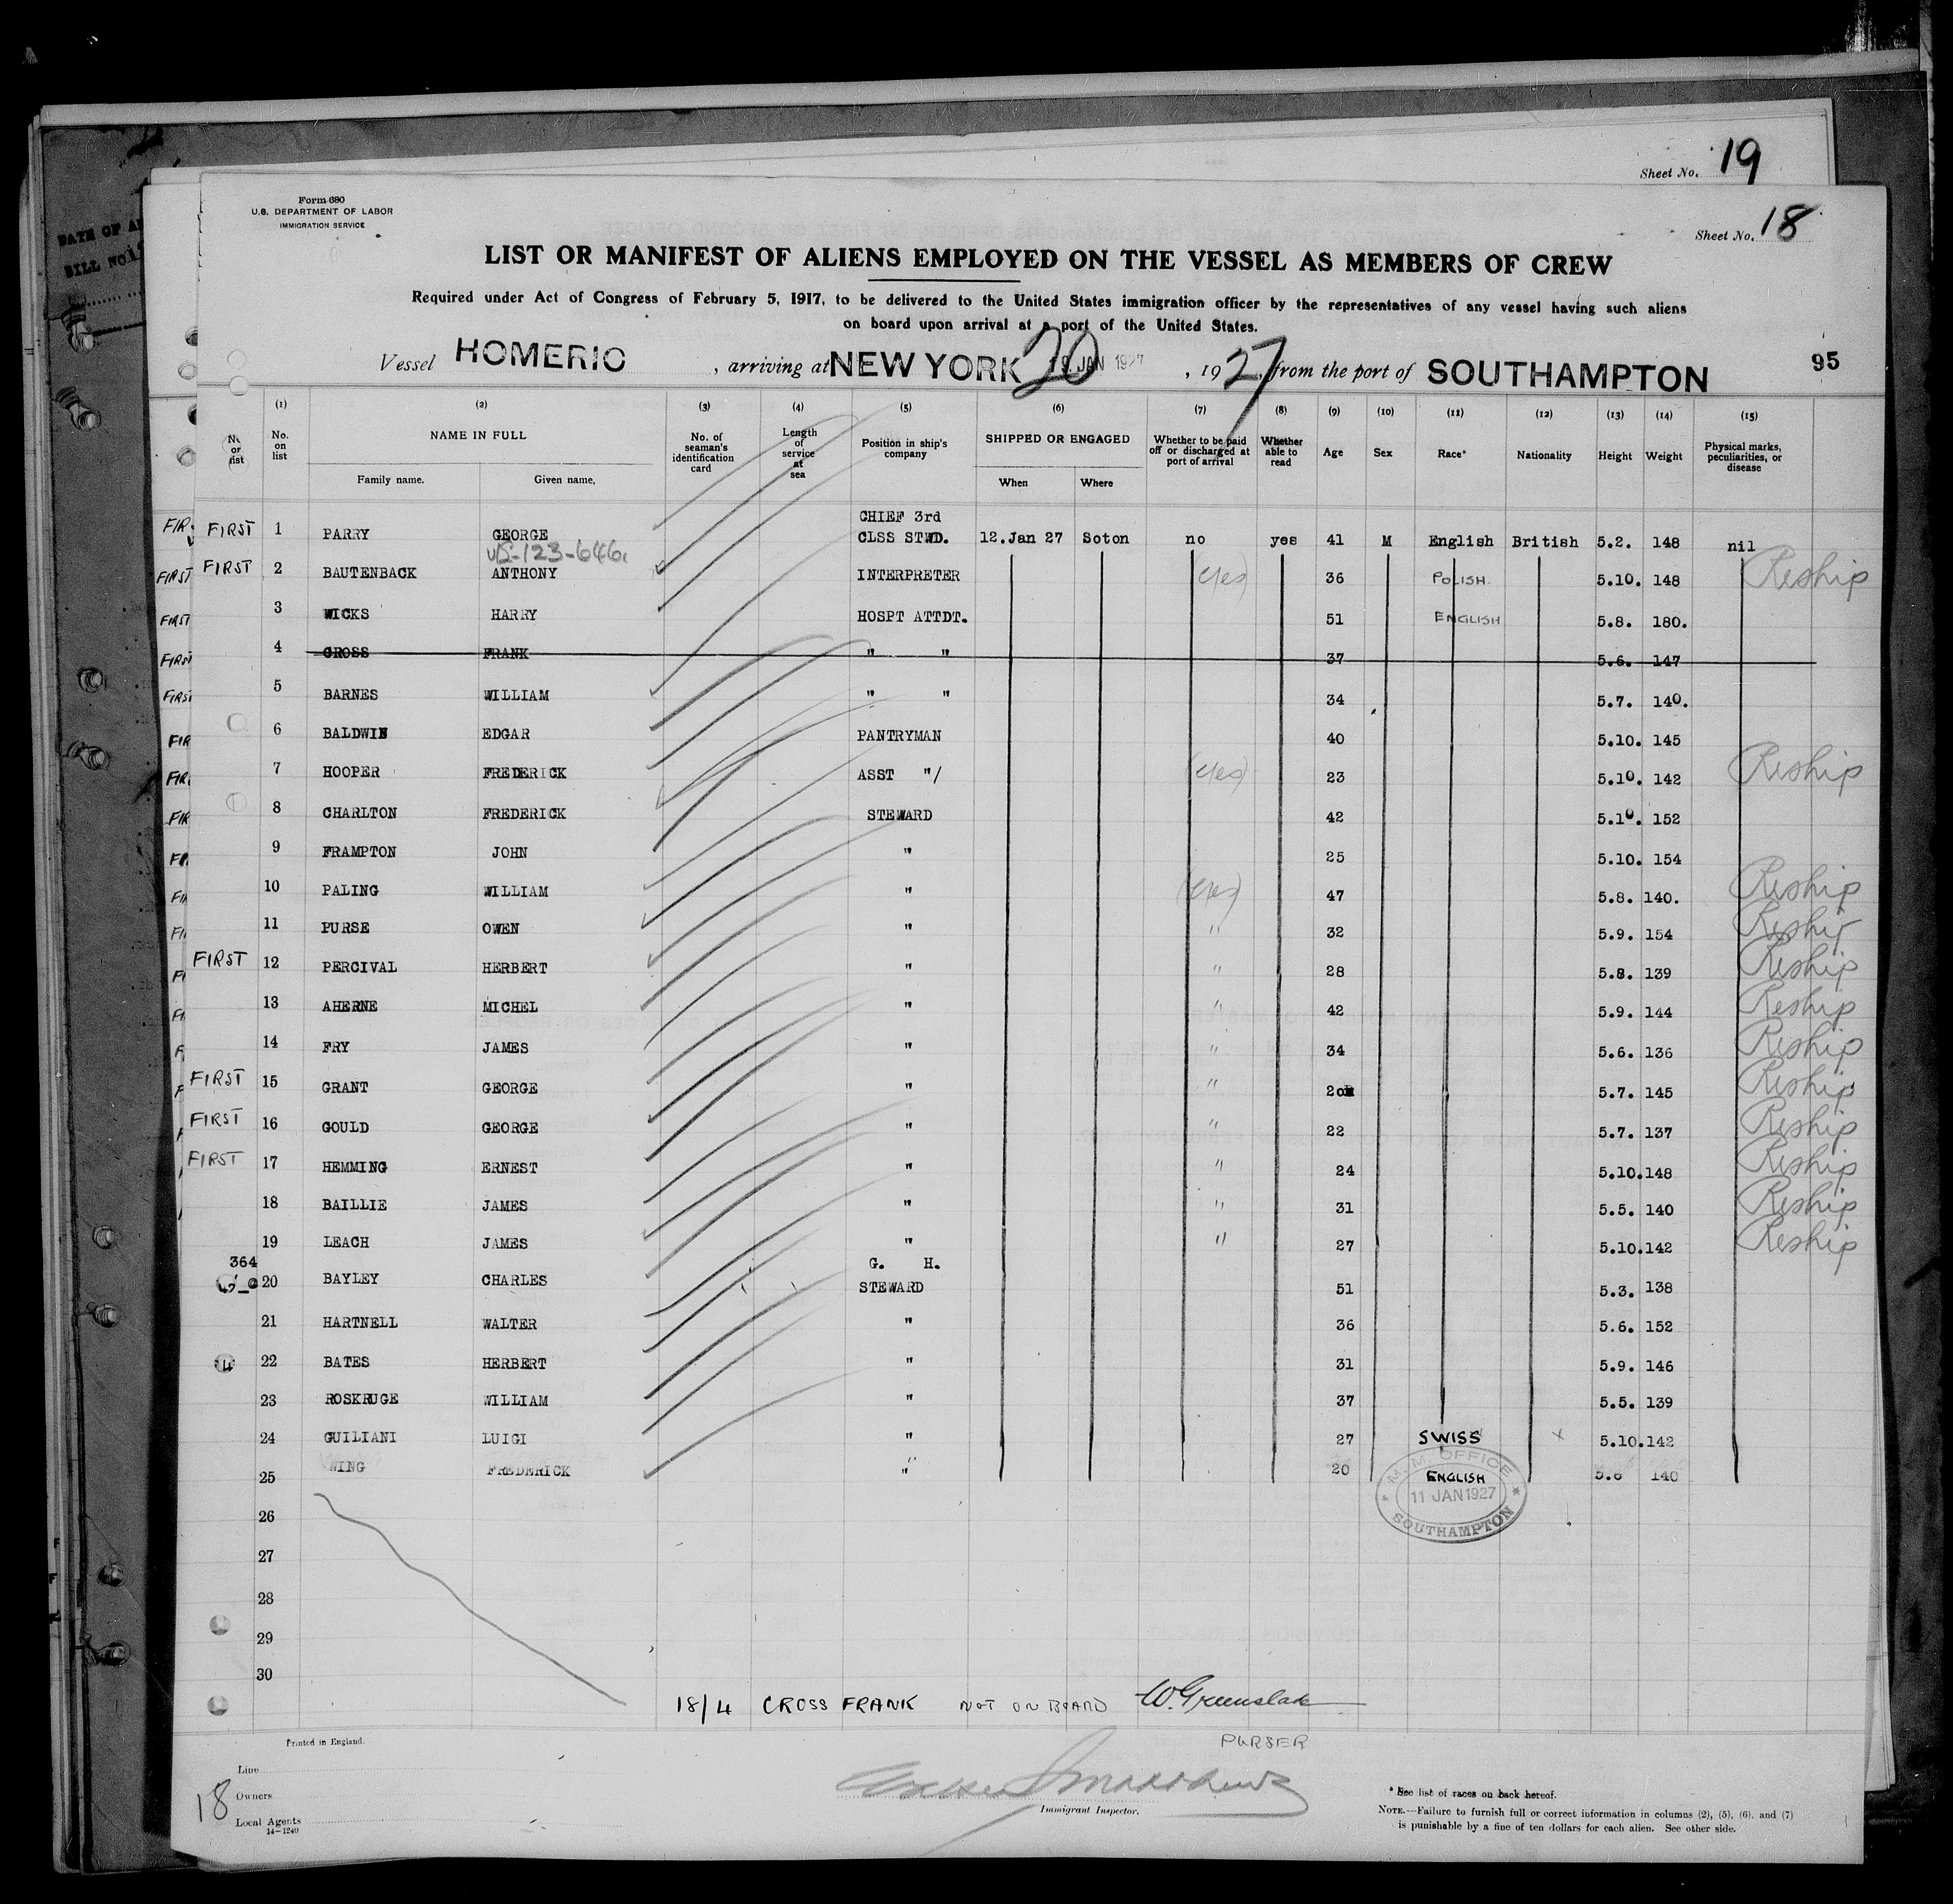 Sheet No. 19
DATE OF
BILL NO.
Form 680
U.S. DEPARTMENT OF LABOR
IMMIGRATION SERVICE
Sheet No. 18
LIST OR MANIFEST OF ALIENS EMPLOYED ON THE VESSEL AS MEMBERS OF CREW
Required under Act of Congress of February 5, 1917, to be delivered to the United States immigration officer by the representatives of any vessel having such aliens
on board upon arrival at a port of the United States.
Vessel HOMERIC , arriving at NEW YORK 20 19 JAN 1927 , 1927, from the port of SOUTHAMPTON 95
(1) (2) (3) (4) (5) (6) (7) (8) (9) (10) (11) (12) (13) (14) (15)
No. on list NAME IN FULL Family name. Given name. No. of seaman's identification card Length of service at sea Position in ship's company SHIPPED OR ENGAGED When Where Whether to be paid off or discharged at port of arrival Whether able to read Age Sex Race* Nationality Height Weight Physical marks, peculiarities, or disease
FIRST 1 PARRY GEORGE CHIEF 3rd CLSS STWD. 12.Jan 27 Soton no yes 41 M English British 5.2. 148 nil
US-123-646.
FIRST 2 BAUTENBACK ANTHONY INTERPRETER (yes) 36 POLISH. 5.10. 148 Reship
3 WICKS HARRY HOSPT ATTDT. 51 ENGLISH 5.8. 180.
4 CROSS FRANK " " 37 5.6. 147
5 BARNES WILLIAM " " 34 5.7. 140.
6 BALDWIN EDGAR PANTRYMAN 40 5.10. 145
7 HOOPER FREDERICK ASST "/ (yes) 23 5.10. 142 Reship
8 CHARLTON FREDERICK STEWARD 42 5.10. 152
9 FRAMPTON JOHN " 25 5.10. 154
10 PALING WILLIAM " (yes) 47 5.8. 140. Reship
11 PURSE OWEN " " 32 5.9. 154 Reship
FIRST 12 PERCIVAL HERBERT " " 28 5.8. 139 Reship
13 AHERNE MICHEL " " 42 5.9. 144 Reship
14 FRY JAMES " " 34 5.6. 136 Reship
FIRST 15 GRANT GEORGE " " 20 5.7. 145 Reship
FIRST 16 GOULD GEORGE " " 22 5.7. 137 Reship
FIRST 17 HEMMING ERNEST " " 24 5.10. 148 Reship
18 BAILLIE JAMES " " 31 5.5. 140 Reship
19 LEACH JAMES " " 27 5.10. 142 Reship
364
20 BAYLEY CHARLES G. H. STEWARD 51 5.3. 138
21 HARTNELL WALTER " 36 5.6. 152
4 22 BATES HERBERT " 31 5.9. 146
23 ROSKRUGE WILLIAM " 37 5.5. 139
24 GUILIANI LUIGI " 27 SWISS x 5.10. 142
25 WING FREDERICK " 20 ENGLISH 5.8 140
M.M. OFFICE
11 JAN 1927
SOUTHAMPTON
26
27
28
29
30
18/4 CROSS FRANK NOT ON BOARD W. Greenslade
PURSER
Printed in England.
Line
Owners
Local Agents
14-1240
18
Immigrant Inspector.
* See list of races on back hereof.
NOTE.—Failure to furnish full or correct information in columns (2), (5), (6), and (7)
is punishable by a fine of ten dollars for each alien. See other side.